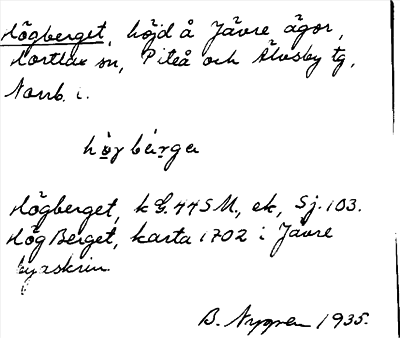 Högberget, höjd å Jävre ägor,
Hortlax sn, Piteå och Älvsby tg,
Norrb. l.
Högberget, k G. 44 S M., ek, Sj. 103.
Hög Berget, karta 1702 i Jävre
byaskrin.
B. Nygren 1935.